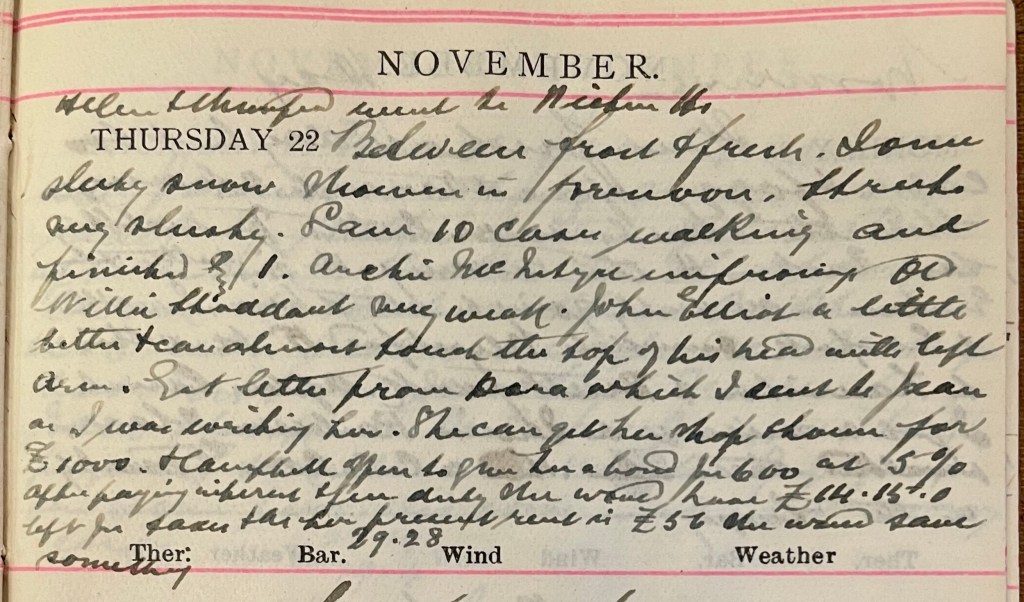 NOVEMBER.
Helen & went to
THURSDAY 22 Between frost & fresh. Some
sleety snow showers in forenoon, Streets
very slushy. Saw 10 cases walking and
finished 1. Archie McIntyre improving Old
Willie Stoddart very weak. John Elliot a little
better & can almost touch the top of his head with left
arm. Got letter from Dora which I sent to Jean
as I was writing her. She can get her shop & house for
£1000. & Campbell offers to give her a bond for 600 at 5 %
after paying interest & feu duty she would have £14.15.0
left for taxes & as her present rent is £56 she would save
something
Ther: Bar. 29.28 Wind Weather